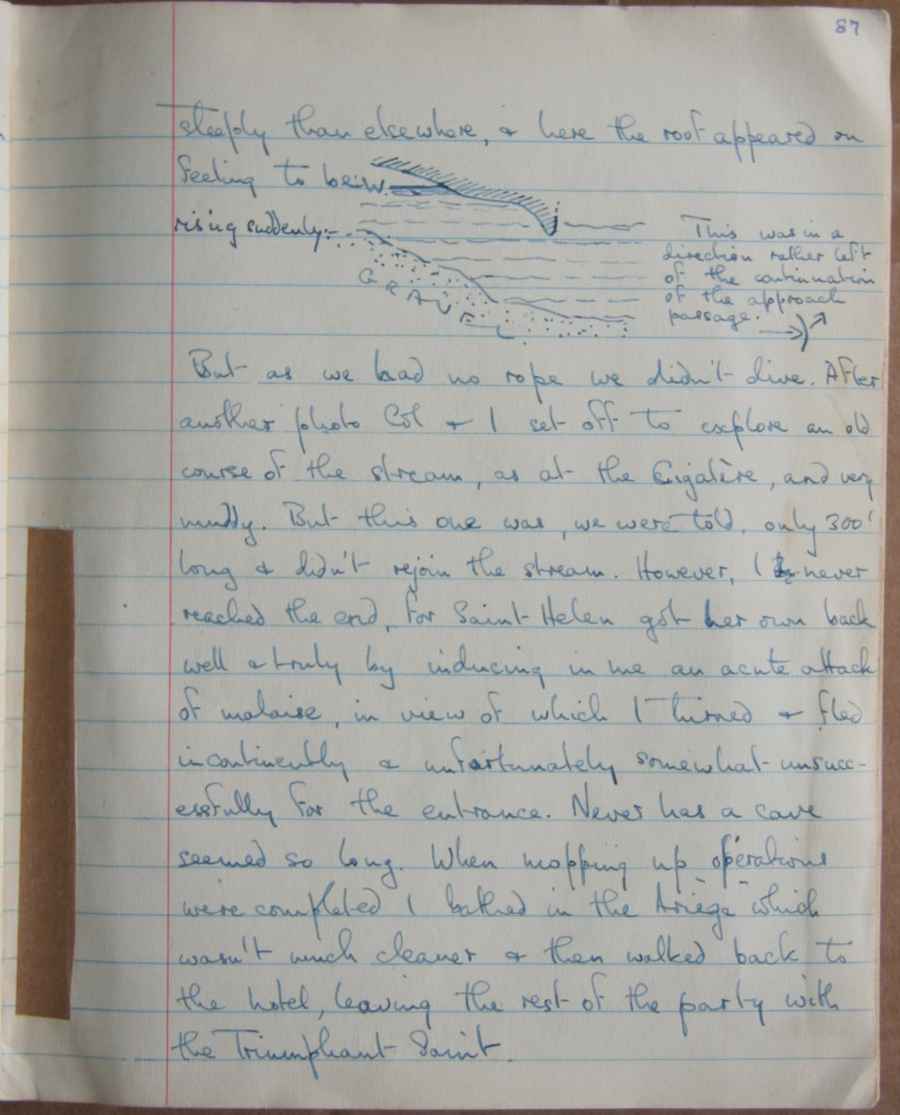 87
steeply than elsewhere, & here the roof appeared on
feeling to be
rising suddenly:-
This was in a
direction rather left
of the continuation
of the approach
passage.
GRAVEL
But as we had no rope we didn't dive. After
another photo Col & I set off to explore an old
course of the stream, as at the Cigalère, and very
muddy. But this one was, we were told, only 300'
long & didn't rejoin the stream. However, I never
reached the end, for Saint Helen got her own back
well & truly by inducing in me an acute attack
of malaise, in view of which I turned & fled
incontinently & unfortunately somewhat unsucc-
essfully for the entrance. Never has a cave
seemed so long. When mopping up operations
were completed I bathed in the Ariège which
wasn't much cleaner & then walked back to
the hotel, leaving the rest of the party with
the Triumphant Saint.